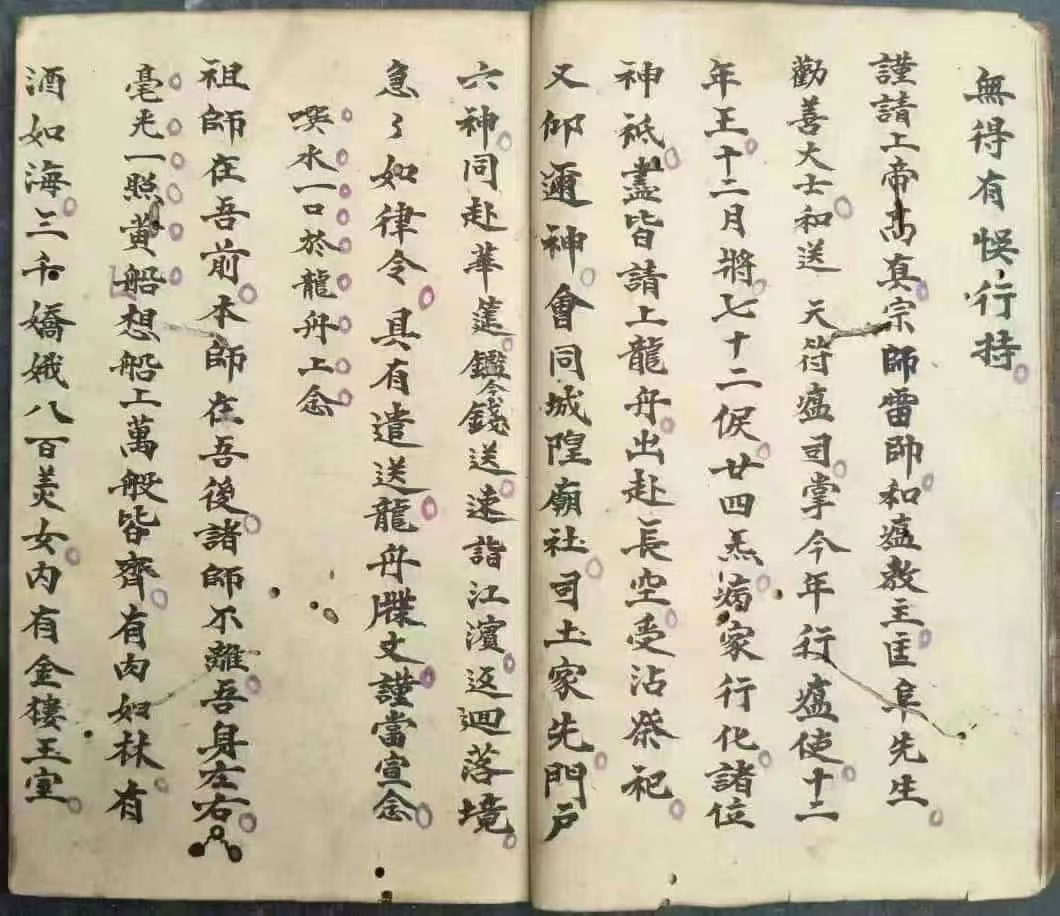 無得有悞行持
謹請上帝高真宗師雷師和瘟教主匡阜先生
勸善大士和送天符瘟司掌今年行瘟使十二
年王十二月將七十二候廿四炁病家行化諸位
神祗盡皆請上龍舟出赴長空受沾祭祀
又仰邇神會同城隍廟社司土家先門戶
六神同赴華筵鑑今錢送速詣江濱返迴落境
急々如律令具有遣送龍舟牒文謹當宣念
噀水一口於龍舟上念
祖師在吾前本師在吾後諸師不離吾身左右
毫光一照黄船想船上萬般皆齊有肉如林有
酒如海三千嬌娥八百美女內有金樓玉室